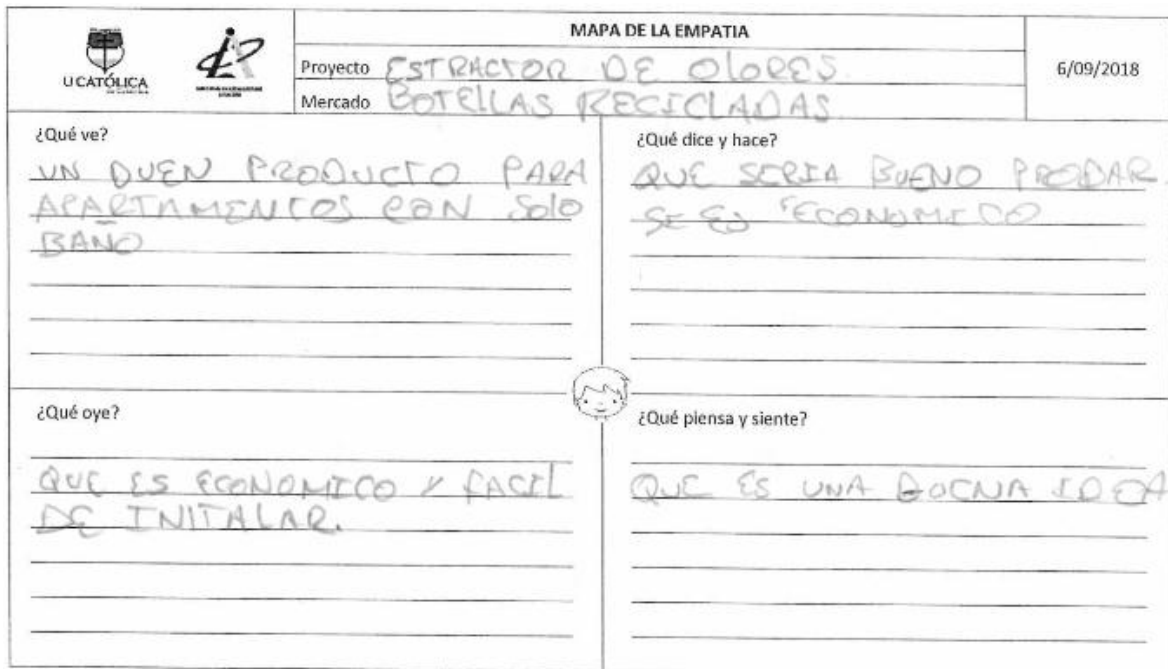 MAPA DE LA EMPATIA
U CATÓLICA
Proyecto ESTRACTOR DE OLORES
6/09/2018
Mercado BOTELLAS RECICLADAS
¿Qué ve?
UN BUEN PRODUCTO PARA
APARTAMENTOS CON SOLO
BAÑO
¿Qué dice y hace?
QUE SERIA BUENO PROBAR
SI ES ECONOMICO
¿Qué oye?
QUE ES ECONOMICO Y FACIL
DE INSTALAR.
¿Qué piensa y siente?
QUE ES UNA BUENA IDEA